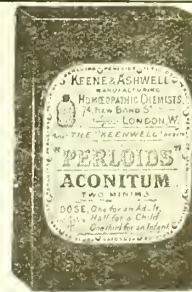 KEENE & ASHWELL
MANUFACTURING
HOMŒOPATHIC CHEMISTS
74, NEW BOND ST
LONDON, W.
THE "KEENWELL"
"PERLOIDS"
ACONITUM
TWO MINIMS
DOSE, One for an Adult
Half for a Child
One third for an Infant